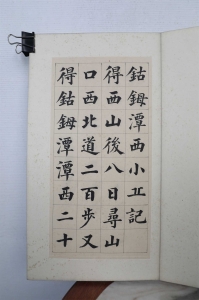 鈷鉧潭西小丘記
得西山後八日尋山
口西北道二百步又
得鈷鉧潭潭西二十